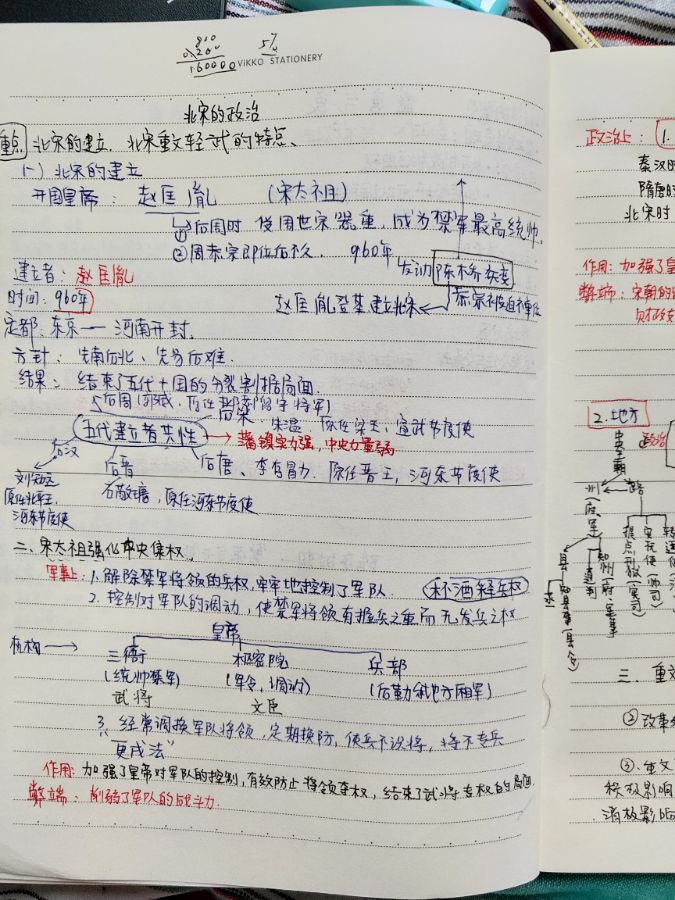 VIKKO STATIONERY
北宋的政治
重点 北宋的建立、北宋重文轻武的特点、
(一) 北宋的建立
开国皇帝：赵匡胤 (宋太祖)
①后周时 使用世宗器重，成为禁军最高统帅.
②周恭宗即位后不久， 960年 发动 陈桥兵变
建立者：赵匡胤
赵匡胤登基建立北宋
时间：960年
定都：东京 — 河南开封.
方针：先南后北、先易后难.
结果：结束了五代十国的分裂割据局面.
后梁 朱温 原任梁王，宣武节度使
五代建立者共性 → 藩镇实力强，中央力量弱
后汉 后晋 后唐、李存勖 原任晋王，河东节度使
刘知远 石敬瑭，原任河东节度使
原任北平王，
河东节度使
二、宋太祖强化中央集权、
军事上：1. 解除禁军将领的兵权，牢牢地控制了军队. 杯酒释兵权
2. 控制对军队的调动，使禁军将领有握兵之重而无发兵之权
皇帝
机构 → 三衙 枢密院 兵部
(统帅禁军) (军令，调动) (后勤和地方厢军)
武将 文臣
3. 经常调换军队将领，定期换防，使兵不识将，将不专兵
"更戍法"
作用：加强了皇帝对军队的控制，有效防止将领夺权，结束了武将专权的局面
弊端：削弱了军队的战斗力.
政治上：1.
秦汉时
隋唐时
北宋时
作用：加强了皇
弊端：宋朝的
财政
2.地方
政治
州 路
(府、军)
县
三、重文
②改革
③重文
积极影响
消极影响